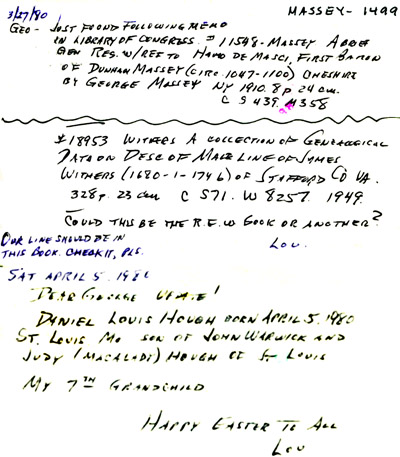 3/27/80
MASSEY - 1499
GEO - JUST FOUND FOLLOWING MEMO
IN LIBRARY OF CONGRESS. # 11548 - MASSEY
GEN REG. W/REF TO HAMO DE MASCI, FIRST BARON
OF DUNHAM MASSEY (CIRC. 1047-1100) CHESHIRE
BY GEORGE MASSEY NY 1910. 8 p 24 cm.
C S 439. M358
#18953 WITHERS A COLLECTION OF GENEALOGICAL
DATA ON DESC OF MALE LINE OF JAMES
WITHERS (1680-1-1746) OF STAFFORD CO VA.
328p. 23 cm C S71. W 8257. 1949.
COULD THIS BE THE R.E.W BOOK OR ANOTHER?
LOU.
OUR LINE SHOULD BE IN
THIS BOOK. CHECK IT, PLS.
SAT APRIL 5. 1980
DEAR GEORGE UPDATE!
DANIEL LOUIS HOUGH BORN APRIL 5, 1980
ST. LOUIS MO SON OF JOHN WARWICK AND
JUDY (MACALADY) HOUGH OF ST LOUIS
MY 7TH GRANDCHILD
HAPPY EASTER TO ALL
LOU